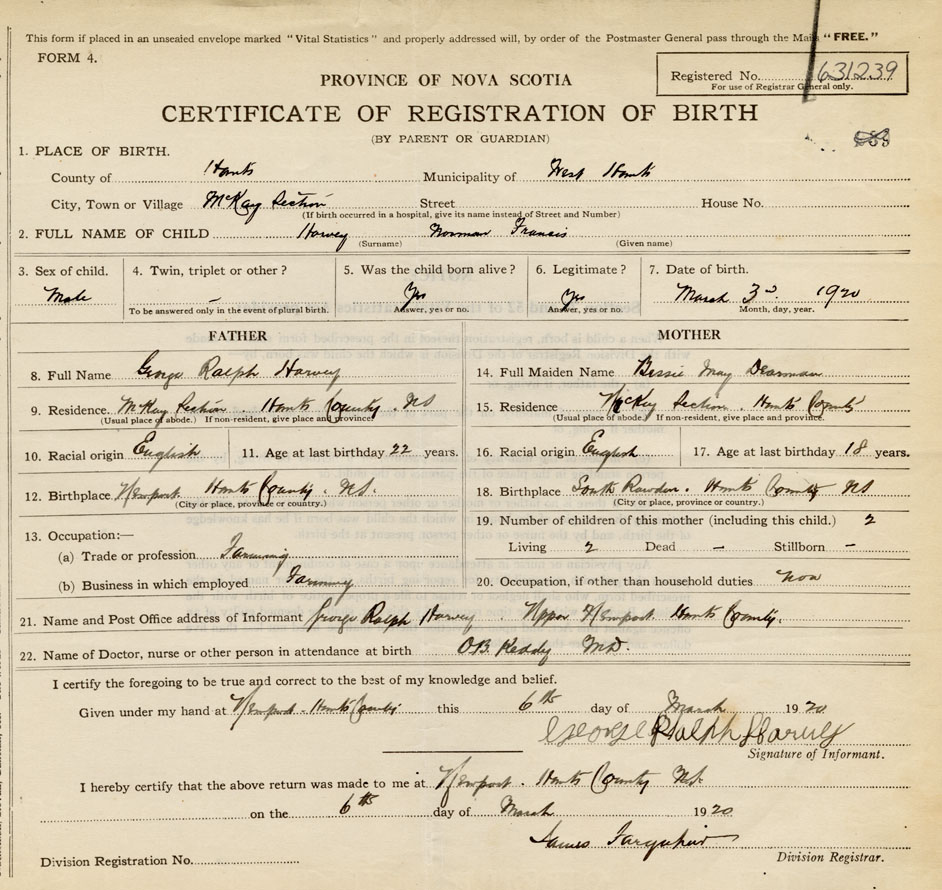 This form if placed in an unsealed envelope marked "Vital Statistics" and properly addressed will, by order of the Postmaster General pass through the Mails "FREE."
FORM 4.
Registered No. 631239
For use of Registrar General only.
PROVINCE OF NOVA SCOTIA
CERTIFICATE OF REGISTRATION OF BIRTH
(BY PARENT OR GUARDIAN)
1. PLACE OF BIRTH.
County of Hants Municipality of West Hants
City, Town or Village McKay Section Street House No.
(If birth occurred in a hospital, give its name instead of Street and Number)
2. FULL NAME OF CHILD Harvey Norman Francis
(Surname) (Given name)
3. Sex of child. 4. Twin, triplet or other? 5. Was the child born alive? 6. Legitimate? 7. Date of birth.
Male – Yes Yes March 3d. 1920
To be answered only in the event of plural birth. Answer, yes or no. Answer, yes or no. Month, day, year.
FATHER MOTHER
8. Full Name George Ralph Harvey
14. Full Maiden Name Bessie May Dearman
9. Residence. McKay Section. Hants County. NS
(Usual place of abode.) If non-resident, give place and province.
15. Residence McKay Section. Hants County
(Usual place of abode.) If non-resident, give place and province.
10. Racial origin English 11. Age at last birthday 22 years.
16. Racial origin English 17. Age at last birthday 18 years.
12. Birthplace Newport Hants County. NS.
(City or place, province or country.)
18. Birthplace South Rawdon. Hants County NS
(City or place, province or country.)
13. Occupation:—
(a) Trade or profession Farming
(b) Business in which employed Farming
19. Number of children of this mother (including this child.) 2
Living 2 Dead – Stillborn –
20. Occupation, if other than household duties non
21. Name and Post Office address of Informant George Ralph Harvey. Upper Newport Hants County.
22. Name of Doctor, nurse or other person in attendance at birth O.B. Keddy M.D.
I certify the foregoing to be true and correct to the best of my knowledge and belief.
Given under my hand at Newport. Hants County. this 6th day of March 1920
George Ralph Harvey
Signature of Informant.
I hereby certify that the above return was made to me at Newport. Hants County N.S.
on the 6th day of March 1920
James Farquhar
Division Registrar.
Division Registration No.